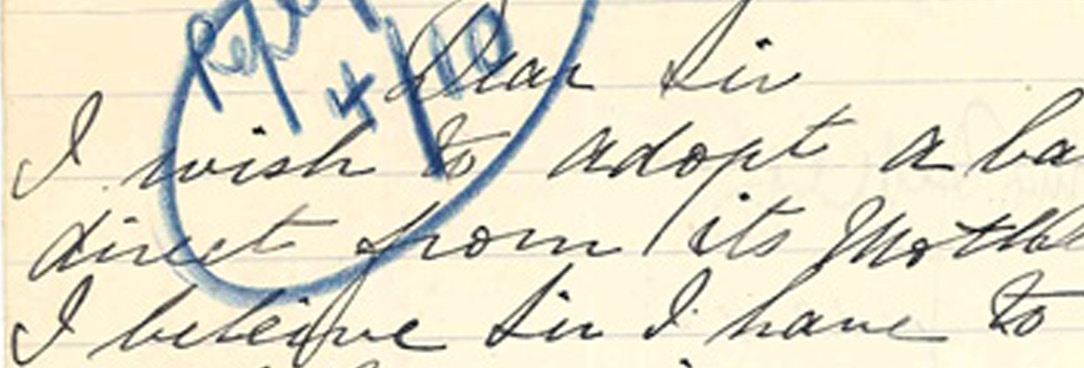 Dear Sir
I wish to adopt a ba
direct from its Moth
I beleive Sir I have to